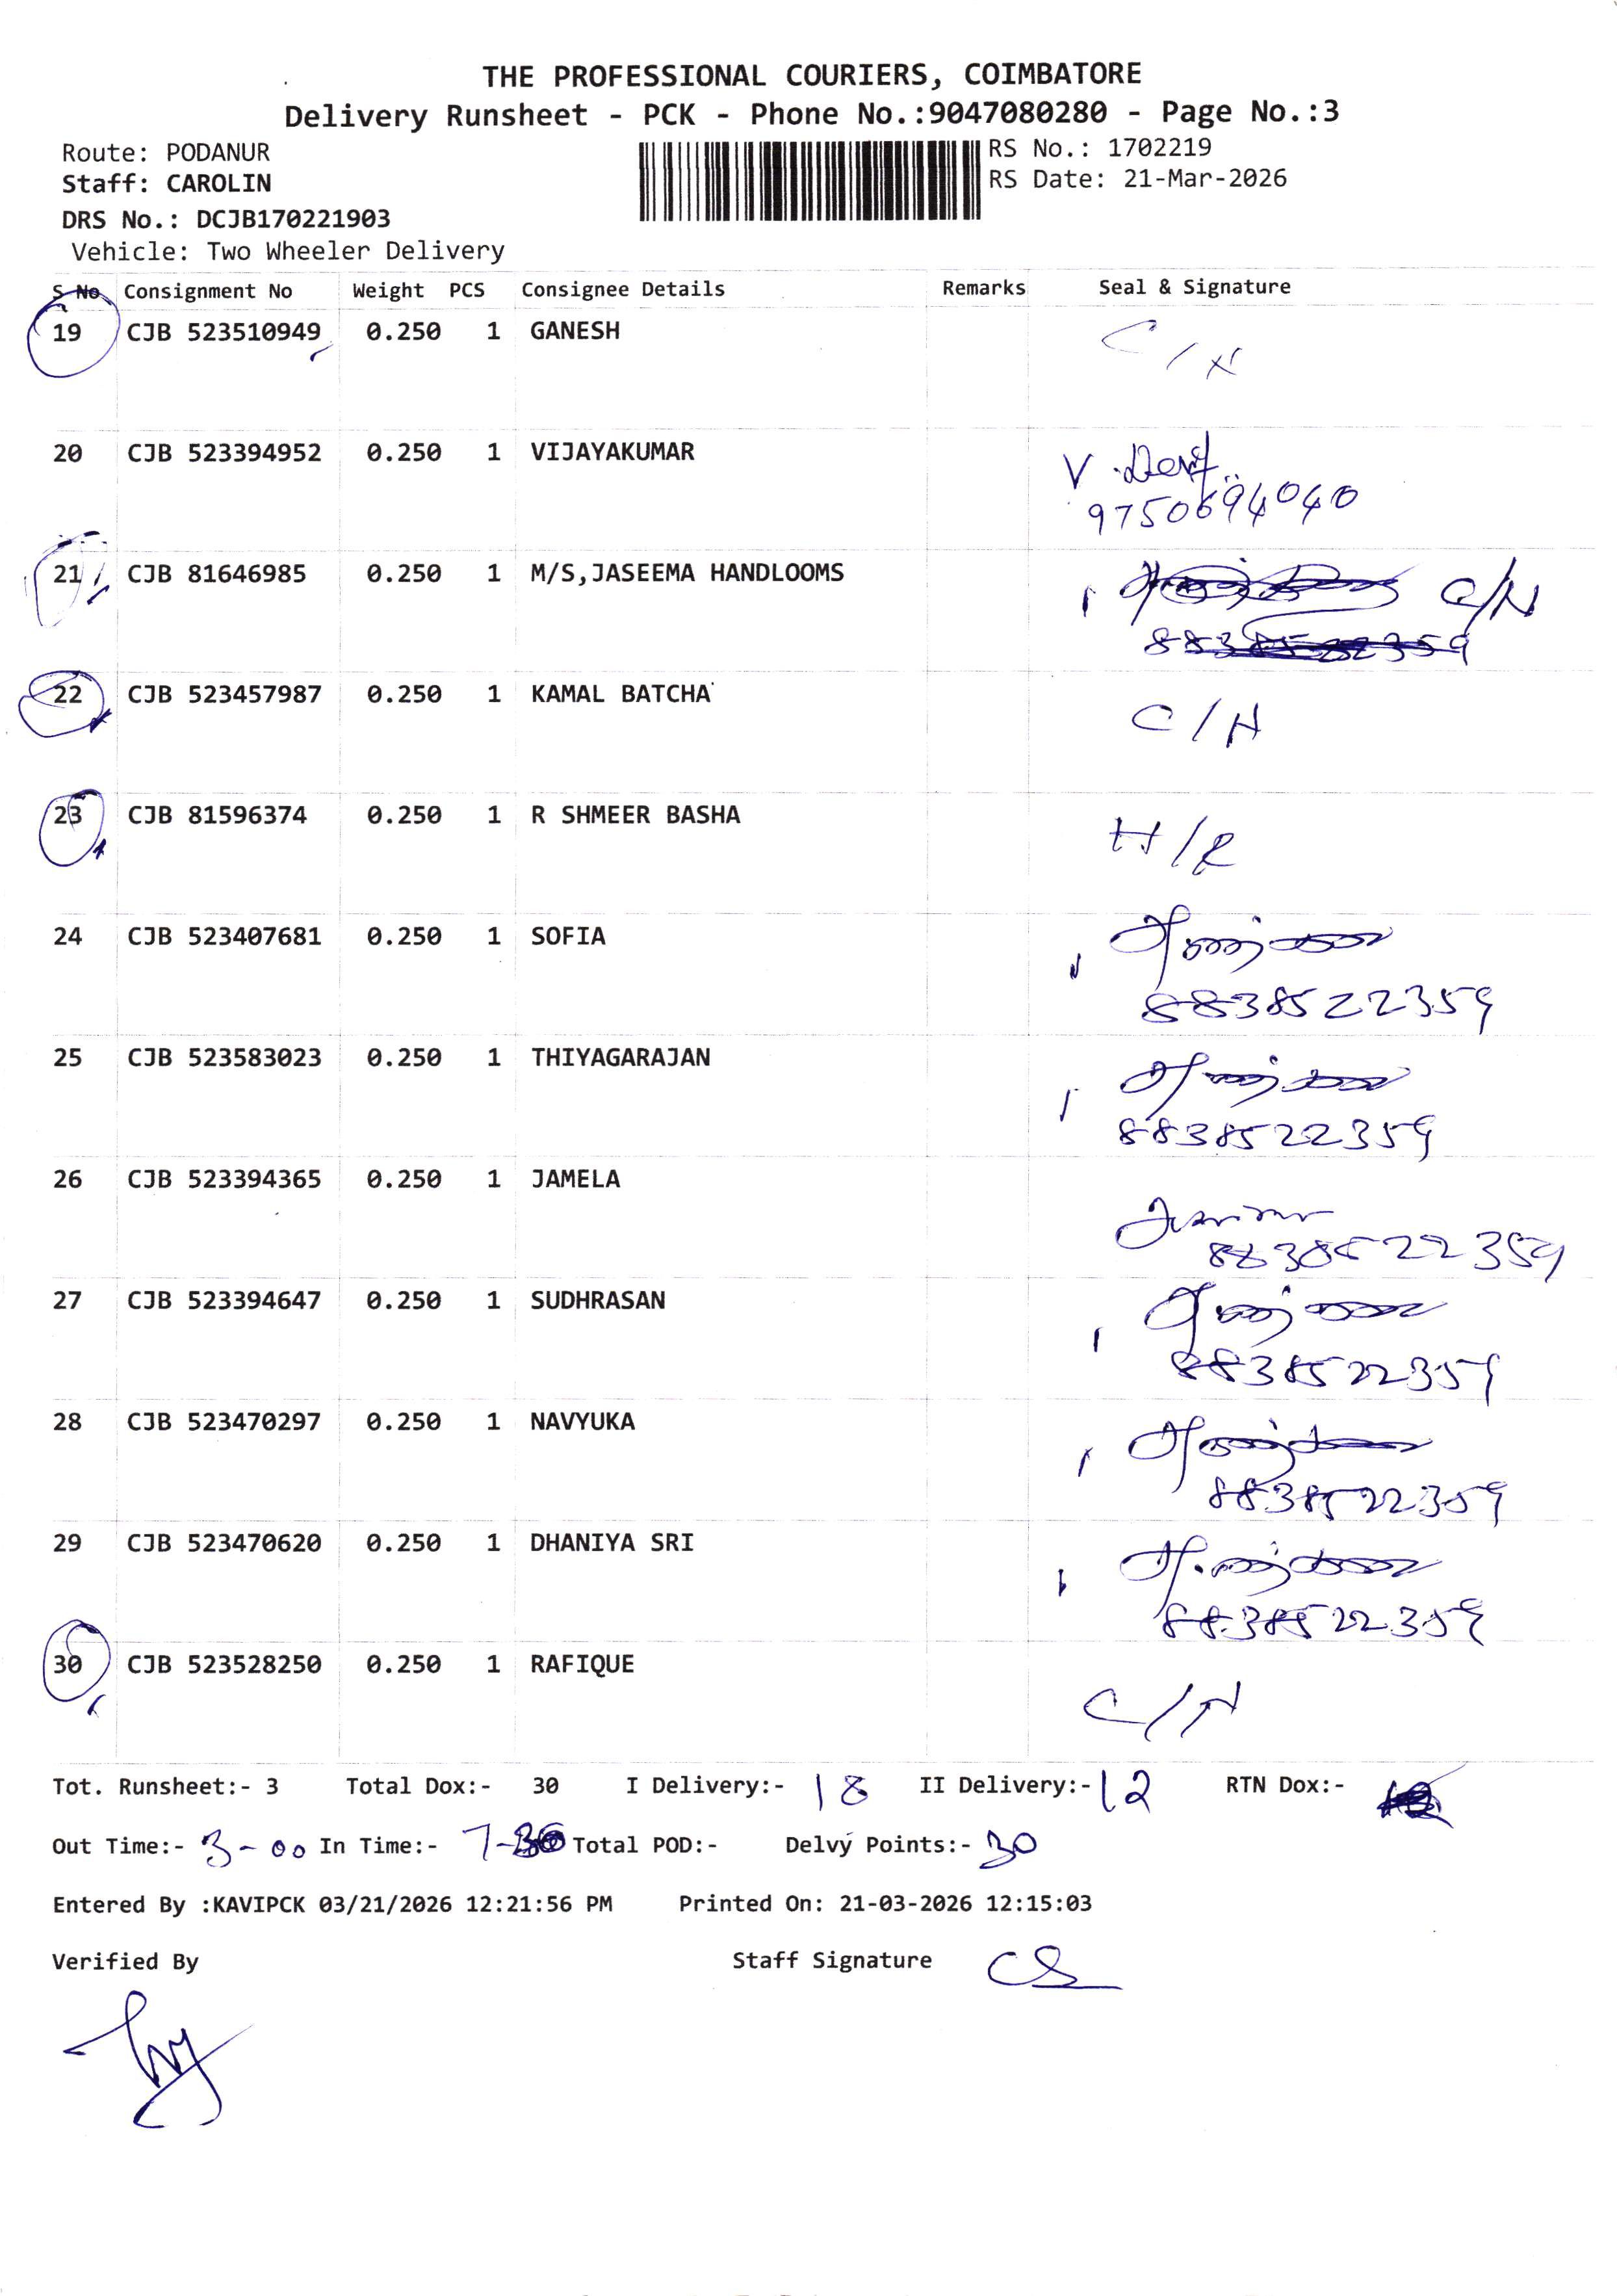 THE PROFESSIONAL COURIERS, COIMBATORE
Delivery Runsheet - PCK - Phone No.:9047080280 - Page No.:3
Route: PODANUR
RS No.: 1702219
Staff: CAROLIN
RS Date: 21-Mar-2026
DRS No.: DCJB170221903
Vehicle: Two Wheeler Delivery
S No Consignment No Weight PCS Consignee Details Remarks Seal & Signature
19 CJB 523510949 0.250 1 GANESH
20 CJB 523394952 0.250 1 VIJAYAKUMAR
9750694040
21 CJB 81646985 0.250 1 M/S,JASEEMA HANDLOOMS C/N
8838522359
22 CJB 523457987 0.250 1 KAMAL BATCHA
C/H
23 CJB 81596374 0.250 1 R SHMEER BASHA
24 CJB 523407681 0.250 1 SOFIA
8838522359
25 CJB 523583023 0.250 1 THIYAGARAJAN
8838522359
26 CJB 523394365 0.250 1 JAMELA
8838522359
27 CJB 523394647 0.250 1 SUDHRASAN
8838522359
28 CJB 523470297 0.250 1 NAVYUKA
8838522359
29 CJB 523470620 0.250 1 DHANIYA SRI
8838522359
30 CJB 523528250 0.250 1 RAFIQUE
C/N
Tot. Runsheet:- 3 Total Dox:- 30 I Delivery:- 18 II Delivery:- 12 RTN Dox:-
Out Time:- 3-00 In Time:- 7-30 Total POD:- Delvy Points:- 30
Entered By :KAVIPCK 03/21/2026 12:21:56 PM Printed On: 21-03-2026 12:15:03
Verified By Staff Signature